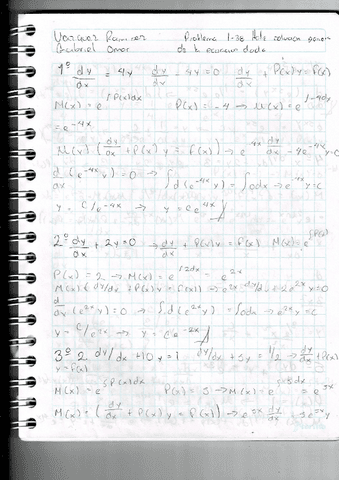 Vazquez Ramirez Problema 1-38 Halle solucion general
Gabriel Omar de la ecuacion dada
1º dy/dx = 4y dy/dx - 4y = 0 dy/dx + P(x)y = f(x)
M(x) = e^∫P(x)dx P(x) = -4 → M(x) = e^∫-4dx
= e^-4x
M(x) (dy/dx + P(x)y = f(x)) → e^-4x dy/dx - 4e^-4x y = 0
d/dx (e^-4x y) = 0 → ∫d(e^-4x y) = ∫0dx → e^-4x y = c
y = c/e^-4x → y = ce^4x
2º dy/dx + 2y = 0 → dy/dx + P(x)y = f(x) M(x) = e^∫P(x)
P(x) = 2 → M(x) = e^∫2dx = e^2x
M(x) (dy/dx + P(x)y = f(x)) → e^2x dy/dx + 2e^2x y = 0
d/dx (e^2x y) = 0 → ∫d(e^2x y) = ∫0dx → e^2x y = c
y = c/e^2x → y = ce^-2x
3º 2 dy/dx + 10y = 1 dy/dx + 5y = 1/2 → dy/dx + P(x)
y = f(x)
M(x) = e^∫P(x)dx P(x) = 5 → M(x) = e^∫5dx = e^5x
M(x) = (dy/dx + P(x)y = f(x)) → e^5x dy/dx 5e^5x y